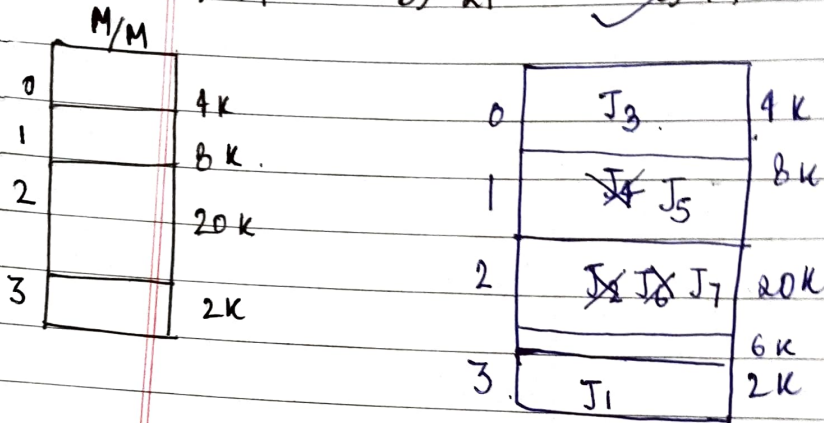 M/M
0
4K
1
8K.
2
20K
3
2K
0 J3. 4K
1 J4 J5 8K
2 J2 J6 J7 20K
6K
3 J1 2K